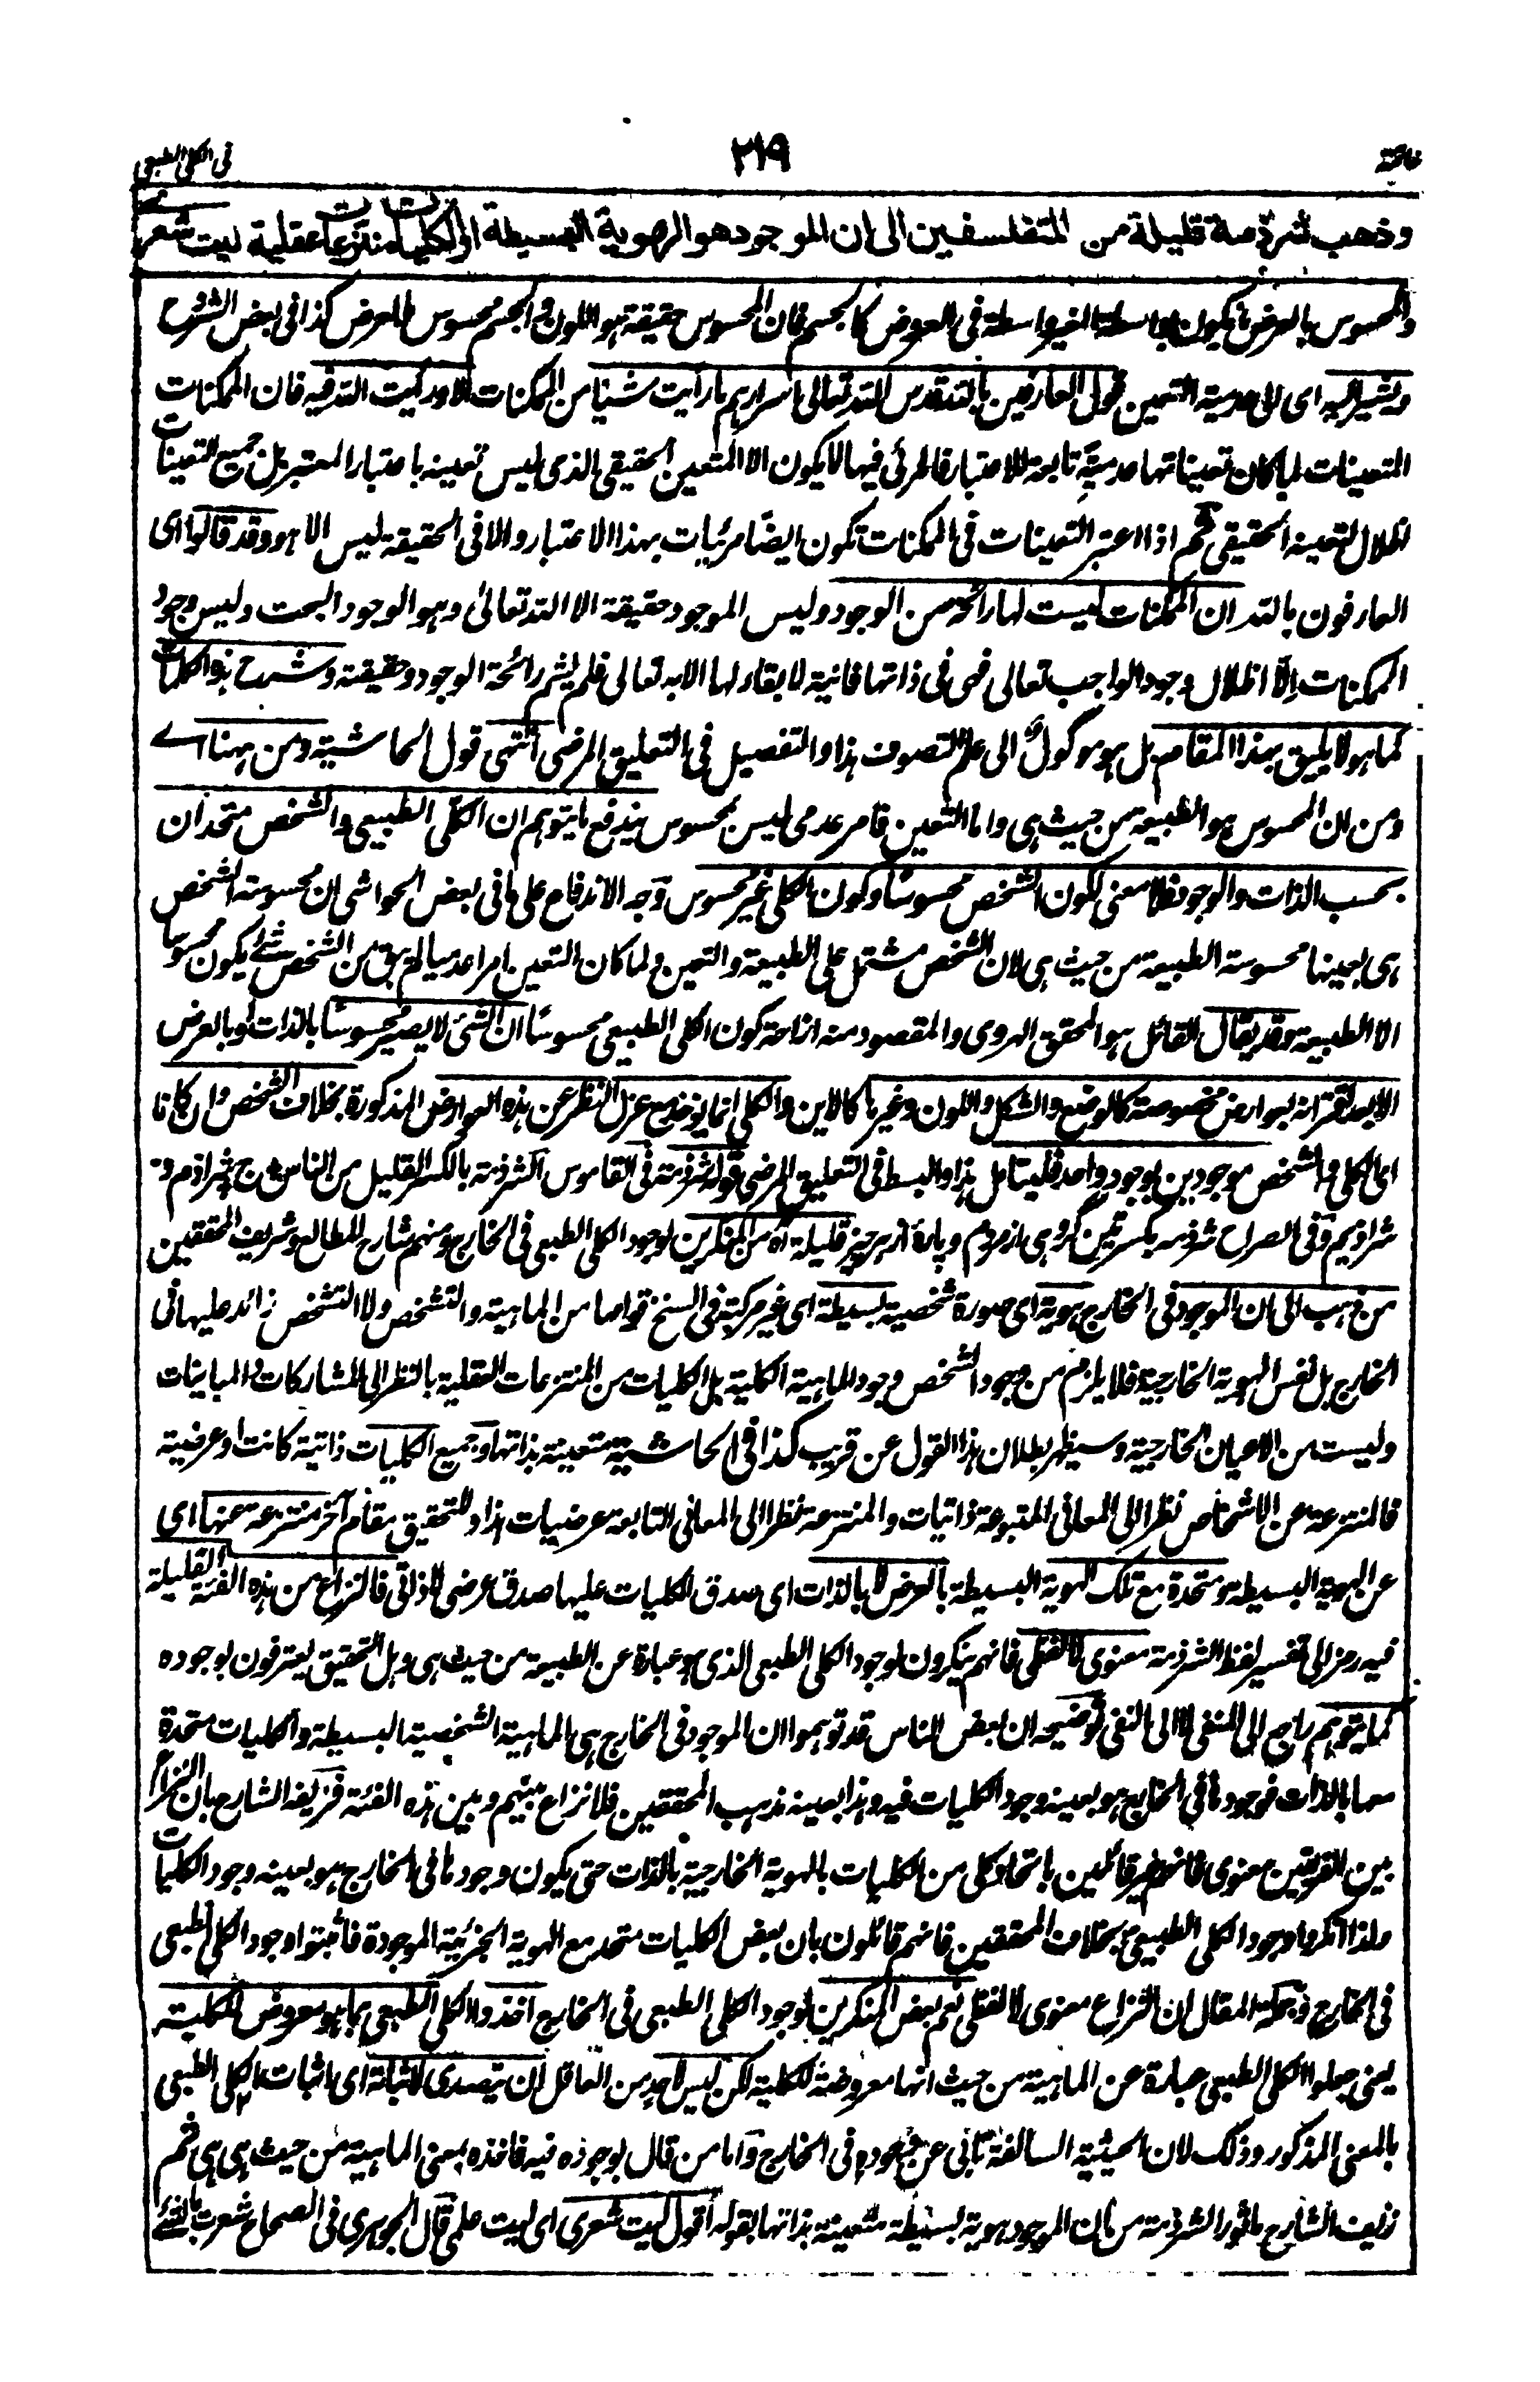 خاتمة ٢١٩ فى الكلى الطبعى
وذهب شرذمة قليلة من المتفلسفين الى ان الموجود هو الهوية البسيطة والكليات منتزعات عقلية ليت شعرى
والمحسوس بالعرض ما يكون بواسطة الغير واسطة فى العروض كالجسم فان المحسوس حقيقة هو اللون والجسم محسوس بالعرض كذا فى بعض الشروح
ويشير اليه اى الى عدمية التعين قول العارفين بالله قدس الله تعالى اسرارهم ما رأيت شيئا من الممكنات الا ورأيت الله فيه فان الممكنات
المتعينات لما كان تعيناتها عدمية تابعة للاعتبار فالمرئى فيها لا يكون الا المتعين الحقيقى الذى ليس تعينه باعتبار المعتبر بل جميع التعينات
اظلال لتعينه الحقيقى ثم اذا اعتبر التعينات فى الممكنات تكون ايضًا مرئيات بهذا الاعتبار والا فى الحقيقة ليس الا هو وقد قالوا اى
العارفون بالله ان الممكنات ليست لها رائحة من الوجود وليس الموجود حقيقة الا الله تعالى وهو الوجود البحت وليس وجود
الممكنات الا اظلال وجود الواجب تعالى فهى فى ذاتها فانية لا بقاء لها الا به تعالى فلم يشم رائحة الوجود وحقيقته وشرح هذه الكلمات
كما هو لا يليق بهذا المقام بل هو موكول الى علم التصوف هذا والتفصيل فى التعليق المرضى انتهى قول الحاشية ومن ههنا اے
ومن ان المحسوس هو الطبيعة من حيث هى واما التعين فامر عدمى ليس بمحسوس يندفع ما يتوهم ان الكلى الطبيعى والشخص متحدان
بحسب الذات والوجود فلا معنى لكون الشخص محسوسًا وكون الكلى غير محسوس وجه الاندفاع على ما فى بعض الحواشى ان محسوسية الشخص
هى بعينها محسوسية الطبيعة من حيث هى لان الشخص مشتمل على الطبيعة والتعين ولما كان التعين امرا عدميا لم يبق من الشخص شئ يكون محسوسا
الا الطبيعة وقد يقال القائل هو المحقق الهروى والمقصود منه ازاحة كون الكلى الطبيعى محسوسًا ان الشئ لا يصير محسوسًا بالذات او بالعرض
الا بعد اقترانه بعوارض مخصوصة كالوضع والشكل واللون وغيرها كالاين والكلى انما يؤخذ مع عزل النظر عن هذه العوارض المذكورة بخلاف الشخص وان كانا
اى الكلى والشخص موجودين بوجود واحد فليتأمل هذا والبسط فى التعليق المرضى قوله شرذمة فى القاموس الشرذمة بالكسر القليل من الناس ج شراذم و
شراذيم وفى الصراح شرذمه بكسرتين گروهى از مردم وپاره از هر چيز قليلة اه من المنكرين لوجود الكلى الطبعى فى الخارج ومنهم شارح المطالع وشريف المحققين
من ذهب الى ان الموجود فى الخارج هوية اى صورة شخصية بسيطة اى غير مركبة فى السنخ قوامها من الماهية والتشخص ولا التشخص زائد عليها فى
الخارج بل نفس الهوية الخارجية فلا يلزم من وجود الشخص وجود الماهية الكلية بل الكليات من المنتزعات العقلية بالنظر الى المشاركات والمباينات
وليست من الاعيان الخارجية وسيظهر بطلان هذا القول عن قريب كذا فى الحاشية متعينة بذاتها وجميع الكليات ذاتية كانت او عرضية
فالمنتزعة عن الاشخاص نظرا الى المعانى المتبوعة ذاتيات والمنتزعة نظرا الى المعانى التابعة عرضيات هذا وللتحقيق مقام آخر منتزعة عنها اى
عن الهوية البسيطة ومتحدة مع تلك الهوية البسيطة بالعرض لا بالذات اى صدق الكليات عليها صدق عرضى لا ذاتى فالنزاع من هذه الفئة القليلة
فيه رمز الى تفسير لفظ الشرذمة معنوى لا لفظى فانهم ينكرون لوجود الكلى الطبعى الذى هو عبارة عن الطبيعة من حيث هى واهل التحقيق يعترفون بوجوده
كما يتوهم راجع الى المنفى لا الى النفى توضيحه ان بعض الناس قد توهموا ان الموجود فى الخارج هى الماهية الشخصية البسيطة والكليات متحدة
معها بالذات فوجود ما فى الخارج هو بعينه وجود الكليات فيه وهذا بعينه مذهب المحققين فلا نزاع بينهم وبين هذه الفئة فزيفه الشارح بان النزاع
بين الفريقين معنوى فانهم غير قائلين باتحاد كلى من الكليات بالهوية الخارجية بالذات حتى يكون وجود ما فى الخارج هو بعينه وجود الكليات
ولذا انكروا وجود الكلى الطبيعى بخلاف المحققين فانهم قائلون بان بعض الكليات متحد مع الهوية الجزئية الموجودة فأثبتوا وجود الكلى الطبعى
فى الخارج وبجملة المقال ان النزاع معنوى لا لفظى نعم بعض المنكرين لوجود الكلى الطبعى فى الخارج اخذوا الكلى الطبعى بما هو معروض للكلية
يعنى جعلوا الكلى الطبعى عبارة عن الماهية من حيث انها معروضة للكلية لكن ليس لاحد من العاقل ان يتصدى لاثباته اى اثبات الكلى الطبعى
بالمعنى المذكور وذلك لان الحيثية السالفة تأبى عن وجوده فى الخارج واما من قال بوجوده فيه فاخذه بمعنى الماهية من حيث هى هى ثم
زيف الشارح ما ثور الشرذمة من ان الموجود هوية بسيطة متعينة بذاتها بقوله اقول ليت شعرى اى ليت علمى قال الجوهرى فى الصحاح شعرت بالشئ